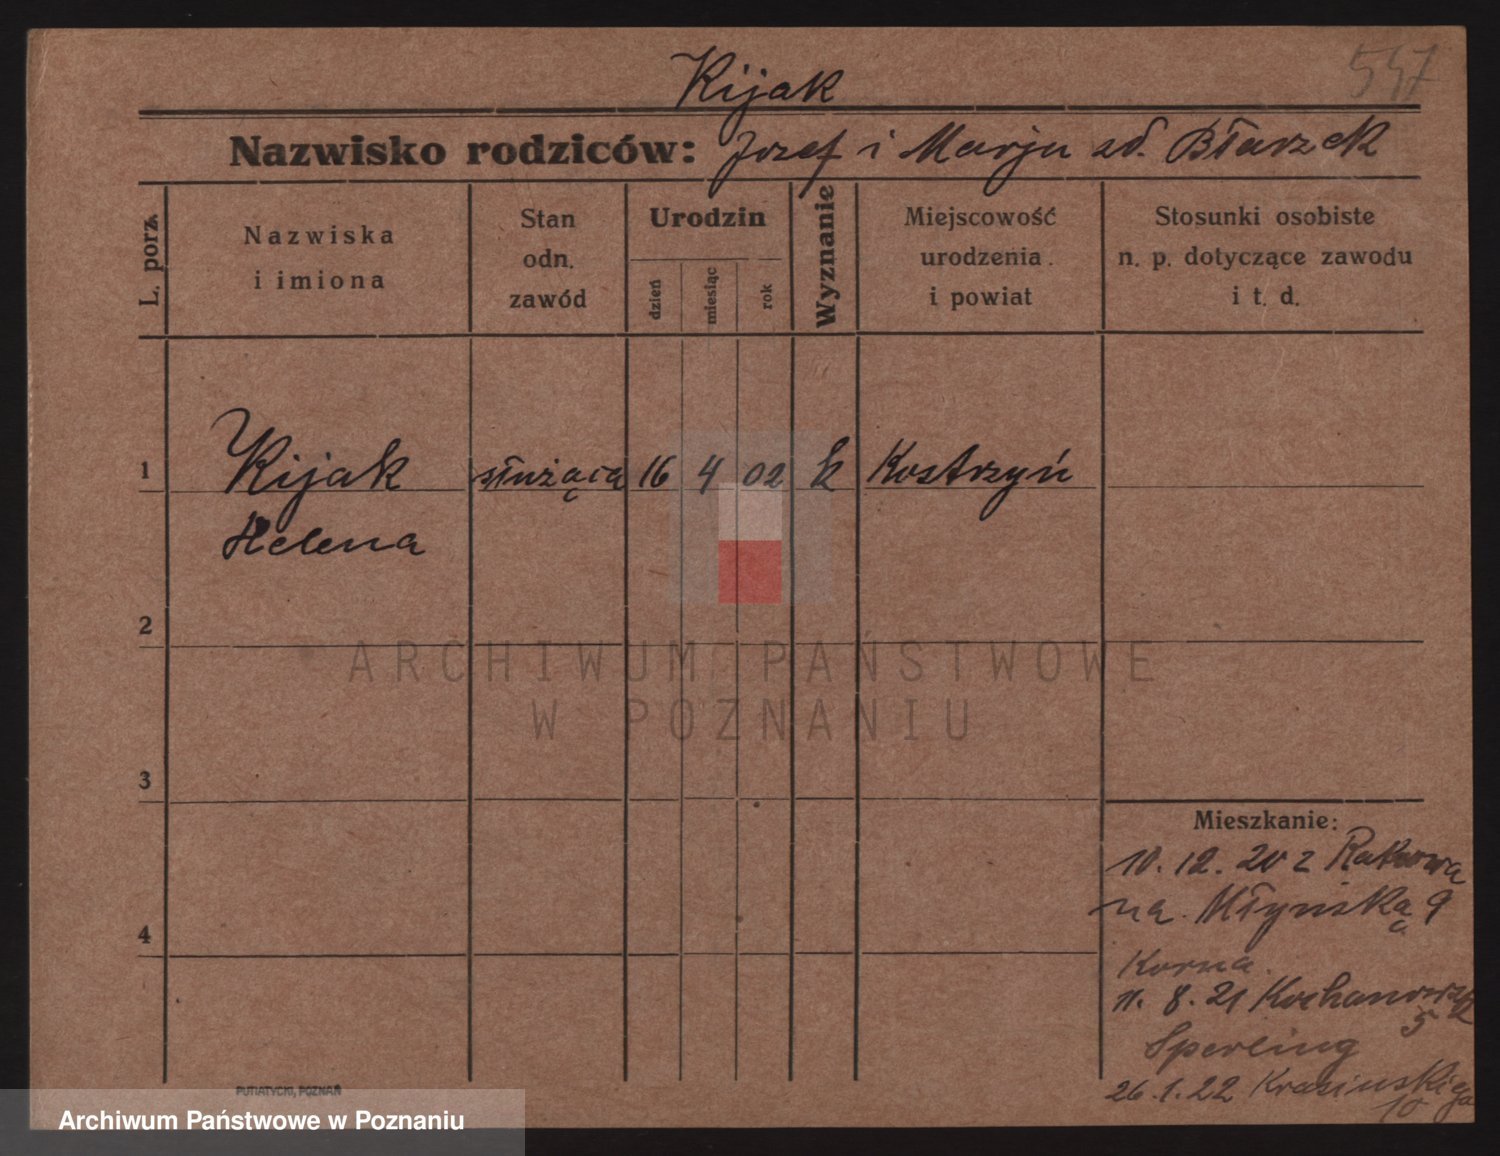 Kijak
547
Nazwisko rodziców: Jozef i Marju zd. Błaszek
L. porz.
Nazwiska
i imiona
Stan
odn.
zawód
Urodzin
dzień
miesiąc
rok
Wyznanie
Miejscowość
urodzenia.
i powiat
Stosunki osobiste
n. p. dotyczące zawodu
i t. d.
1
Kijak służąca 16 4 02 k Kostrzyń
Helena
2
ARCHIWUM PAŃSTWOWE
W POZNANIU
3
Mieszkanie:
10. 12. 20 z Rakowa
na Młyńską 9
4
Korna
11. 8. 21 Kochanowsk
5
Sperling
26.1.22 Krasinskiego
10
PUTIATYCKI, POZNAŃ
Archiwum Państwowe w Poznaniu